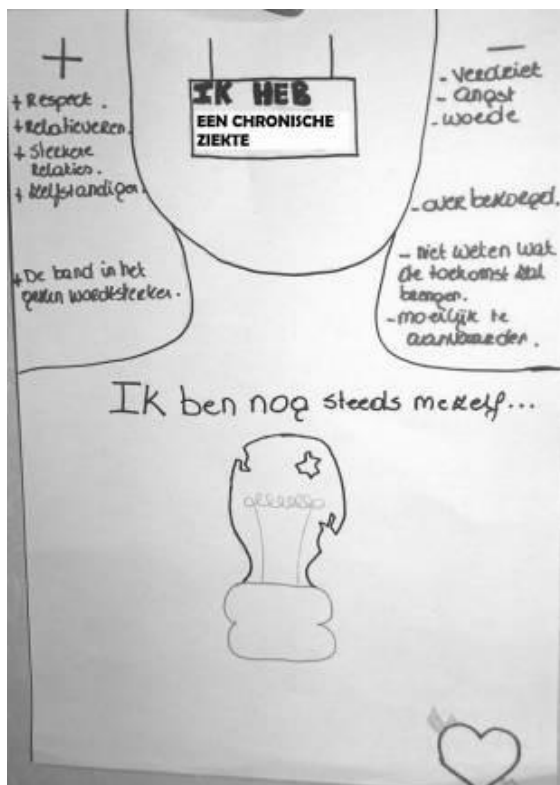 +
+ Respect.
+ Relativeren.
+ Sterkere
Relaties.
+ Zelfstandiger.
+ De band in het
gezin wordt sterker.
IK HEB
EEN CHRONISCHE
ZIEKTE
-
- Verdriet
- angst
- woede
- over bezorgd.
- niet weten wat
de toekomst zal
brengen.
- moeilijk te
aanvaarden.
Ik ben nog steeds mezelf...